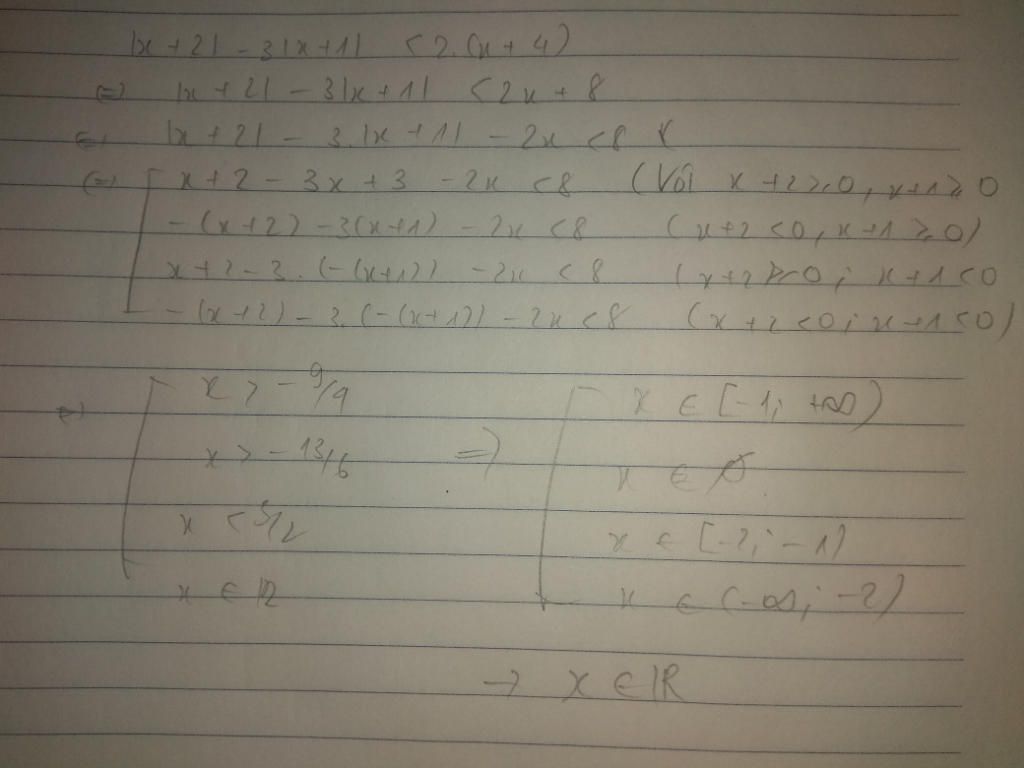 |x+2| - 3|x+1| < 2.(x+4)
⇔ |x+2| - 3|x+1| < 2x+8
⇔ |x+2| - 3.|x+1| - 2x < 8
⇔ x+2 - 3x+3 - 2x < 8 (Với x+2≥0, x+1≥0
-(x+2) - 3(x+1) - 2x < 8 (x+2<0, x+1≥0)
x+2 - 3.(-(x+1)) - 2x < 8 (x+2≥0; x+1<0
-(x+2) - 3.(-(x+1)) - 2x < 8 (x+2<0; x+1<0)
⇔ x > -9/4 x ∈ [-1; +∞)
x > -13/6 ⇒ x ∈ ∅
x < 5/2 x ∈ [-2; -1)
x ∈ ℝ x ∈ (-∞; -2)
→ x ∈ ℝ